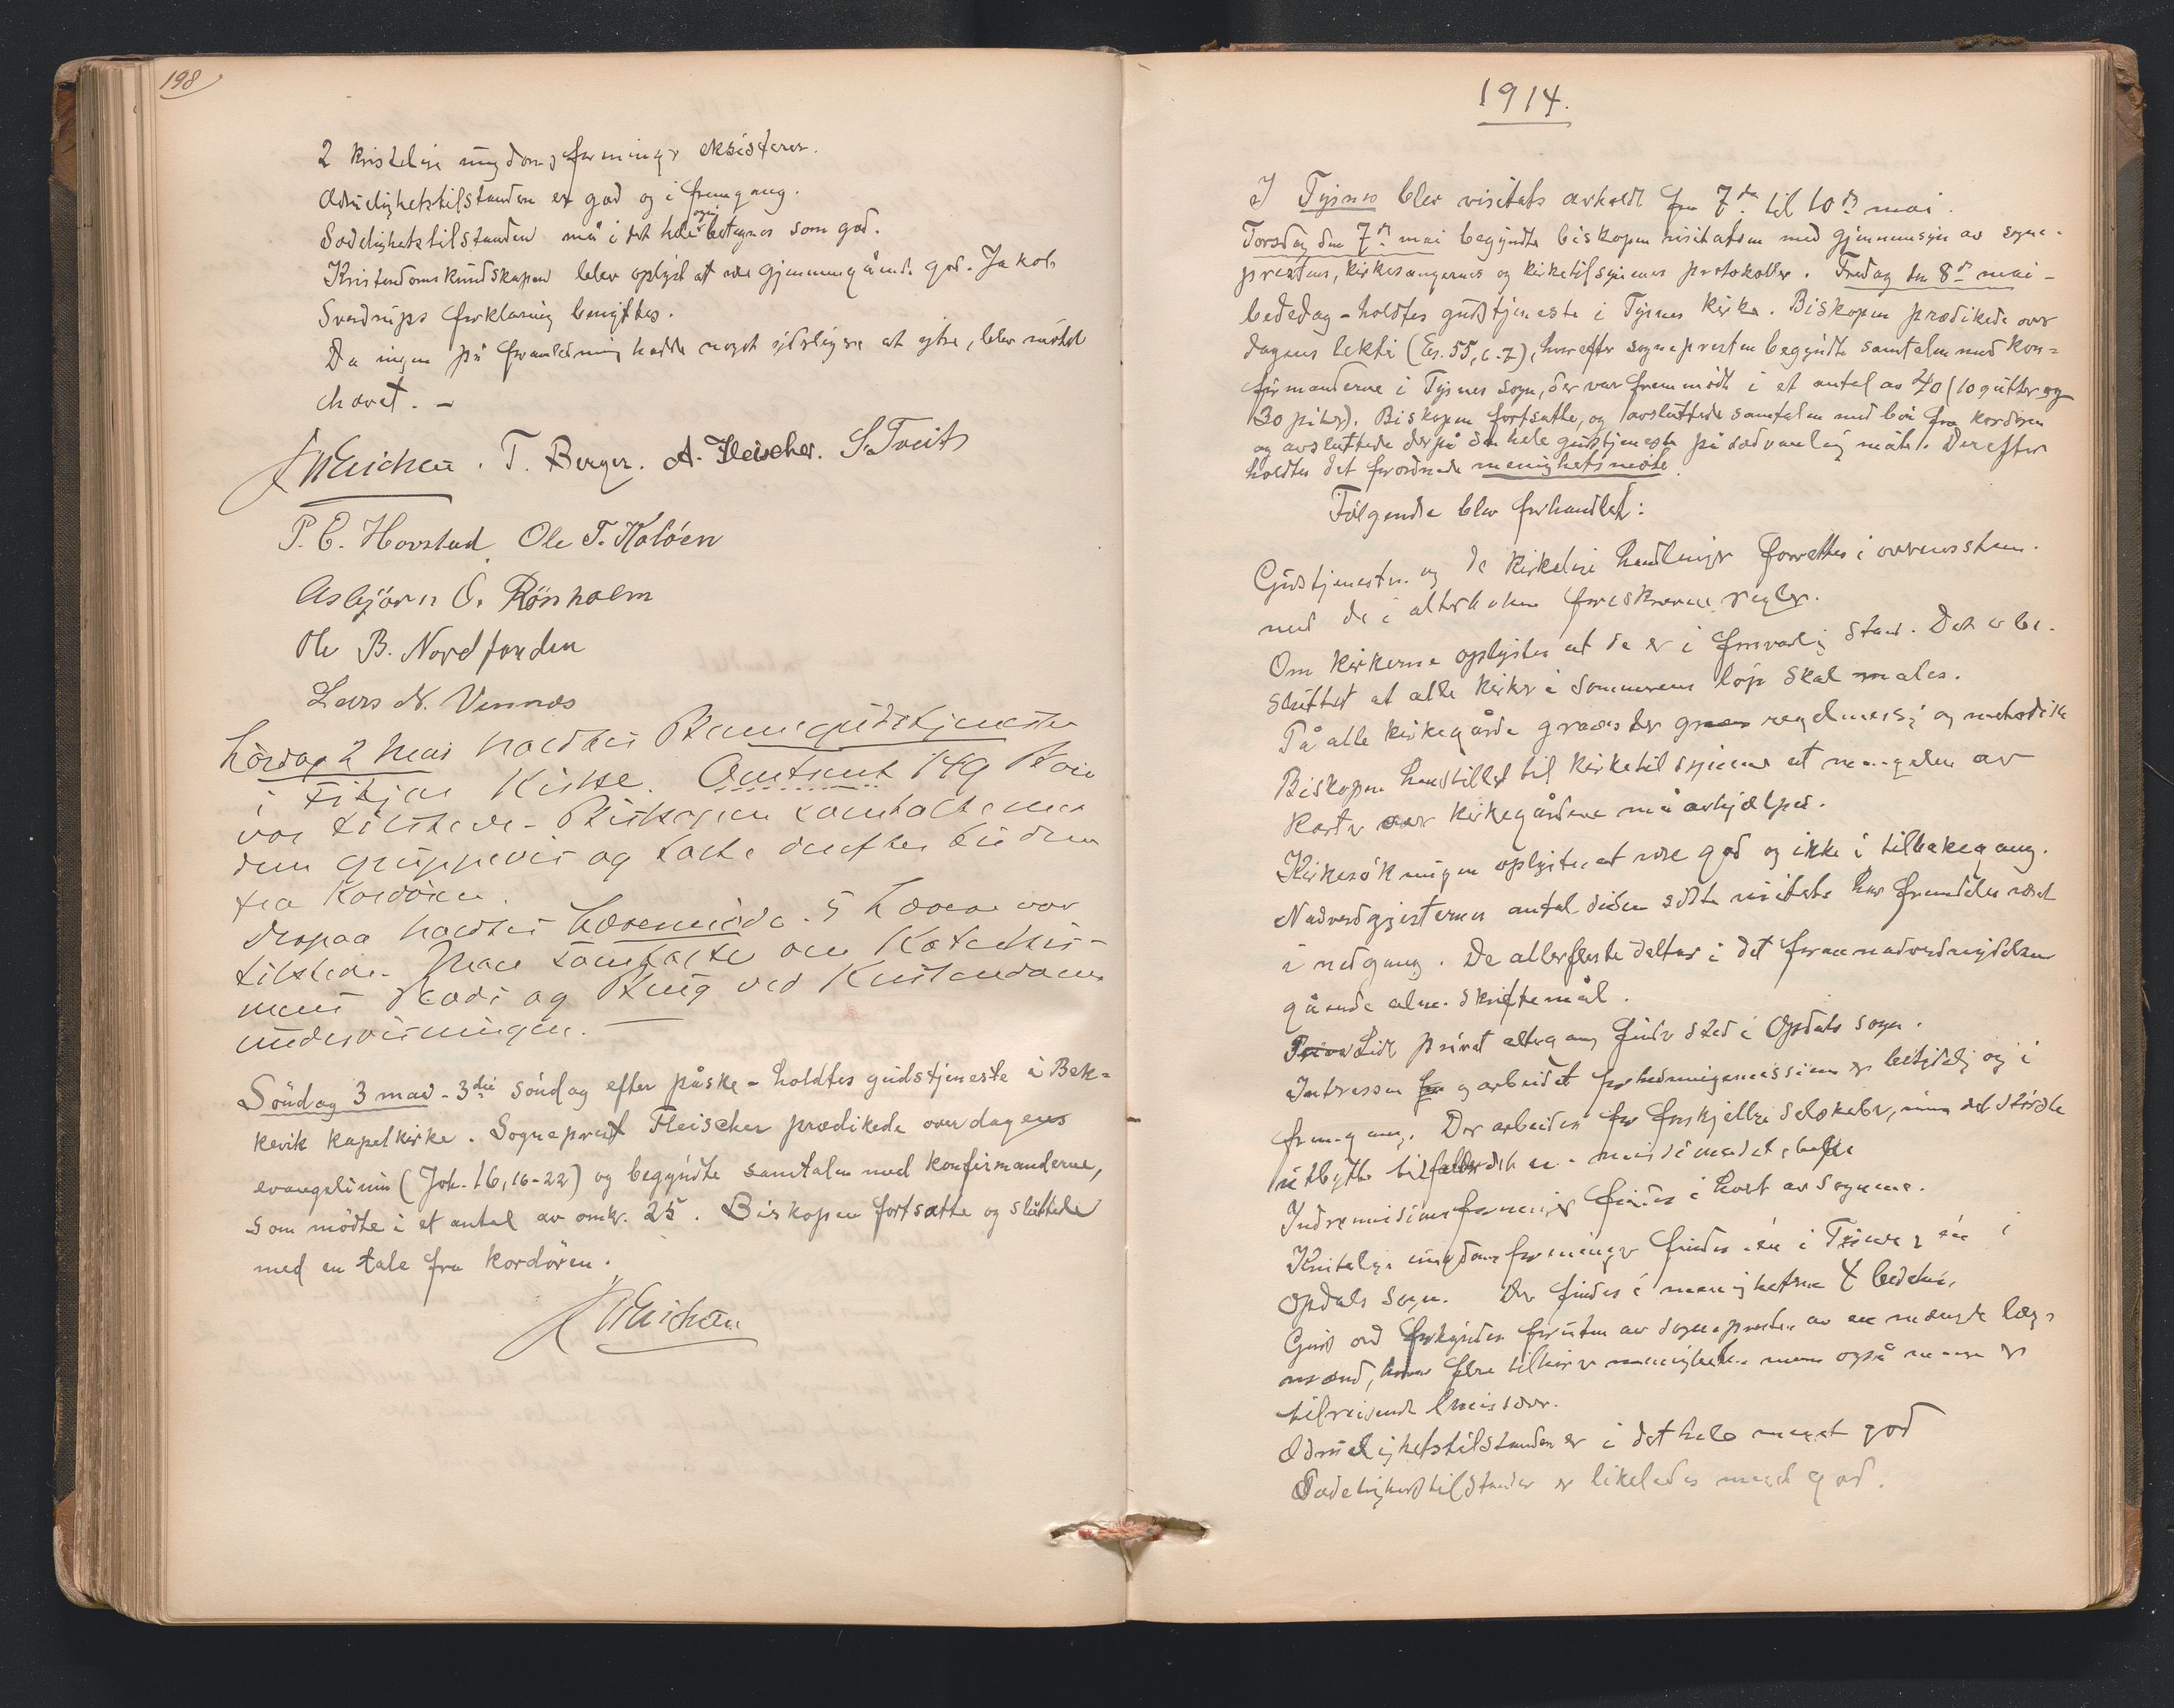 198
2 kristelige ungdomsforeninger eksisterer.
Ædruelighetstilstanden er god og i fremgang.
Sedelighetstilstanden må i det hele også betegnes som god.
Kristendomskundskapen blev oplyst at være gjennemgående god. Jakob
Sverdrups forklaring benyttes.
Da ingen på foranledning hadde noget yderligere at ytre, blev mötet
hævet. –
T. Berger. A. Fleischer. S. Tveit
P. C. Hovstad Ole T. Kaloen
Asbjörn O. Rönholm
Ole B. Nordfonden
Lars N. Vinnes
Lördag 2 Mai holdtes Barnegudstjeneste
i Fitjar Kirke. Omtrent 149 Barn
var tilstede. Biskopen samtalte med
dem gruppevis og talte derefter til dem
fra Kordören.
Derpaa holdtes Læremöde. 5 Lærere var
tilstede. Man samtalte om Katekis-
mens Plads og Brug ved Kristendoms
undervisningen. –
Söndag 3 mai - 3die söndag efter påske - holdtes gudstjeneste i Bek=
kevik kapelkirke. Sogneprest Fleischer prædikede over dagens
evangelium (Joh. 16,16-22) og begyndte samtalen med konfirmanderne,
som mödte i et antal av omkr. 25. Biskopen fortsatte og sluttede
med en tale fra kordören.
1914.
I Tysnes blev visitats avholdt fra 7de til 10de mai.
Torsdag den 7de mai begyndte biskopen visitatsen med gjennemsyn av sogne-
prestens, kirkesangernes og kirketilsynenes protokoller. Fredag den 8de mai -
bededag - holdtes gudstjeneste i Tysnes kirke. Biskopen prædikede over
dagens lektie (Es. 55, 6-7), hvorefter sognepresten begyndte samtalen med kon=
firmanderne i Tysnes sogn, der var fremmödt i et antal av 40 (10 gutter og
30 piker). Biskopen fortsatte, og avsluttede samtalen med bön fra kordören
og avsluttede derpå den hele gudstjeneste på sedvanlig måte. Derefter
holdtes det forordnede menighetsmöte.
Fölgende blev forhandlet:
Gudstjenesten og de kirkelige handlinger forrettes i overensstem.
med de i alterboken foreskrevne regler.
Om kirkerne oplystes at de er i forsvarlig stand. Det er be-
sluttet at alle kirker i sommerens löp skal males.
På alle kirkegårde graves der regelmessig og metodisk
Biskopen henstillet til kirketilsynene at mangelen av
karter over kirkegårdene må avhjælpes.
Kirkesökningen oplystes at være god og ikke i tilbakegang.
Nadverdgjesternes antal siden sidste visitats har fremdeles været
i nedgang. De allerfleste deltar i det foran nadverdnydelsen
gående alm. skriftemål.
Lidt privat altergang finder sted i Opdals sogn.
Interessen og arbeidet for hedningemissionen er betydelig og i
fremgang. Der arbeides for forskjellige selskaper, men det störste
utbytte tilfalder det n. missionsselskap
Indremissionsforening findes i hvert av sognene.
Kristelige ungdomsforeninger findes: én i Tysnes og én i
Opdals sogn. Der findes i menigheterne 4 bedehus.
Guds ord forkyndes foruten av sognepresten av en mængde læg-
mænd, hvorav flere tilhörer menigheten men også mange er
tilreisende emissærer.
Ædruelighetstilstanden er i det hele meget god
Sedelighetstilstanden er likeledes meget god.